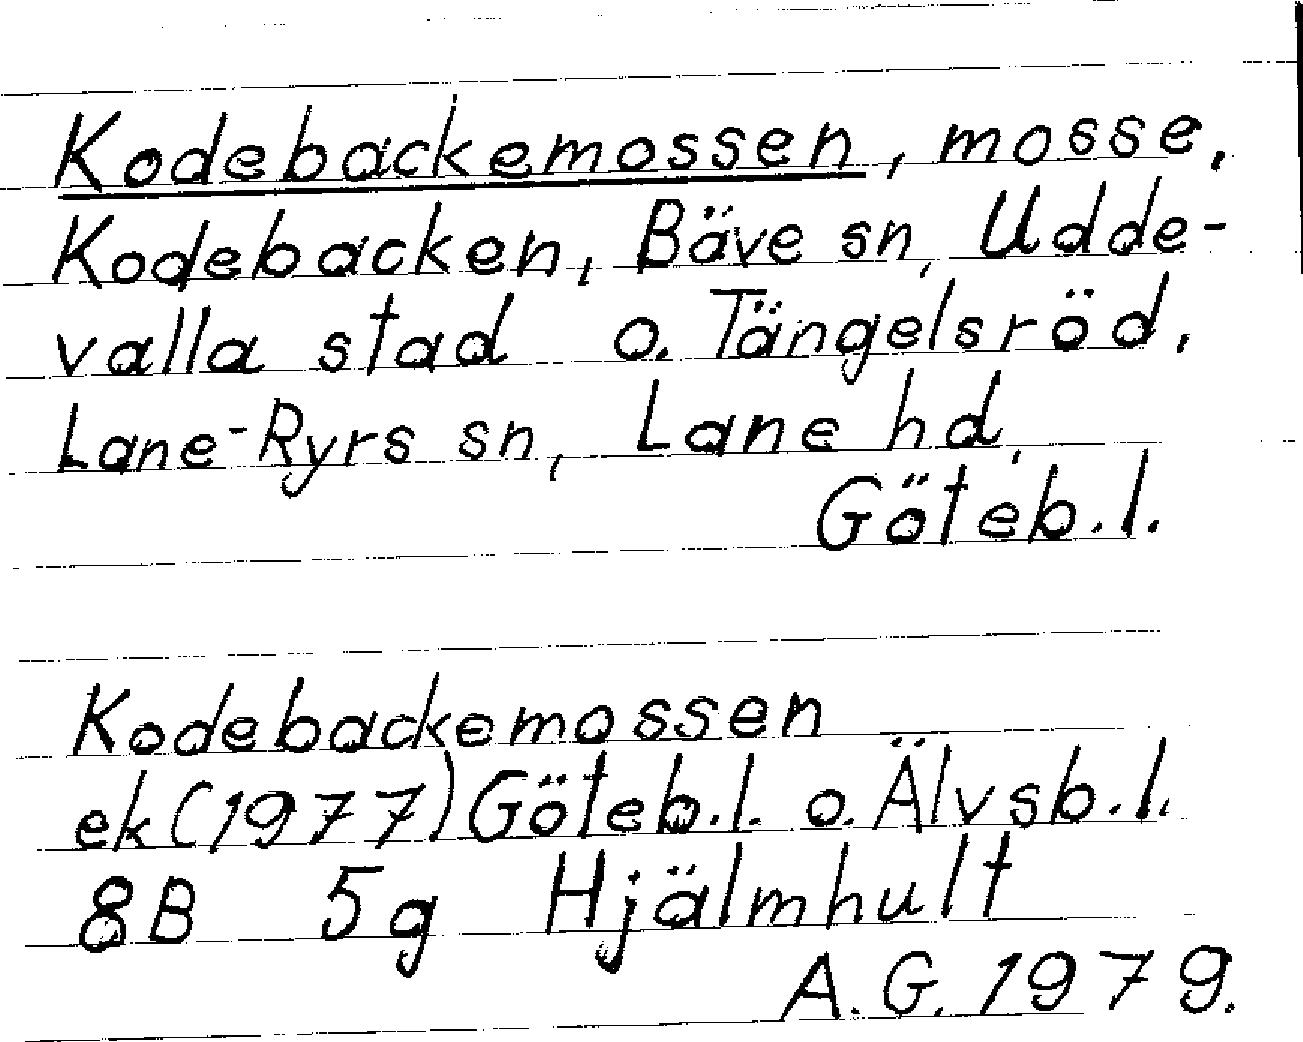 Kodebackemossen, mosse,
Kodebacken, Bäve sn, Udde-
valla stad o. Tängelsröd,
Lane-Ryrs sn, Lane hd,
Göteb.l.
Kodebackemossen
ek (1977) Göteb.l. o. Älvsb.l.
8B 5g Hjälmhult
A.G. 1979.